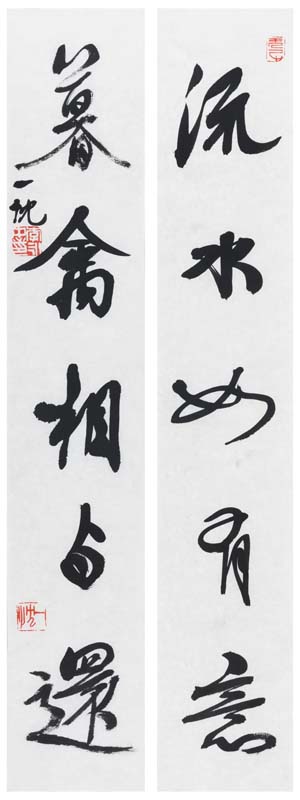 流水如有意
暮禽相与還
一沈